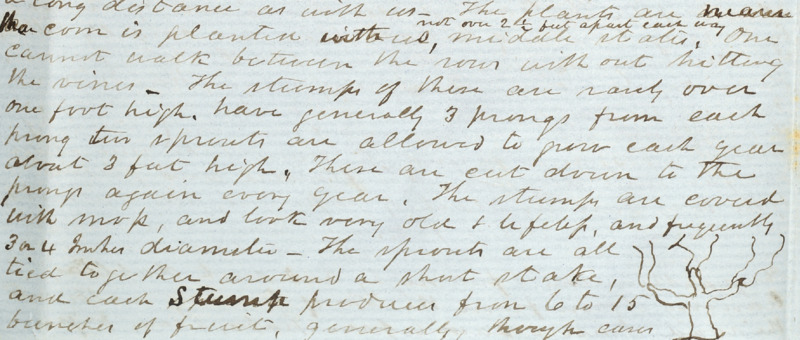 a long distance as with us - The plants are nearer
than corn is planted with us, middle states. One
not over 2½ feet apart each way
cannot walk between the rows with out hitting
the vines - The stumps of these are rarely over
one foot high. have generally 3 prongs from each
prong two sprouts are allowed to grow each year
about 3 feet high, These are cut down to the
prongs again every year. The stumps are covered
with moss, and look very old & lifeless, and frequently
3 or 4 Inches diameter - The sprouts are all
tied together around a short stake,
and each Stump produces from 6 to 15
bunches of fruit, generally though